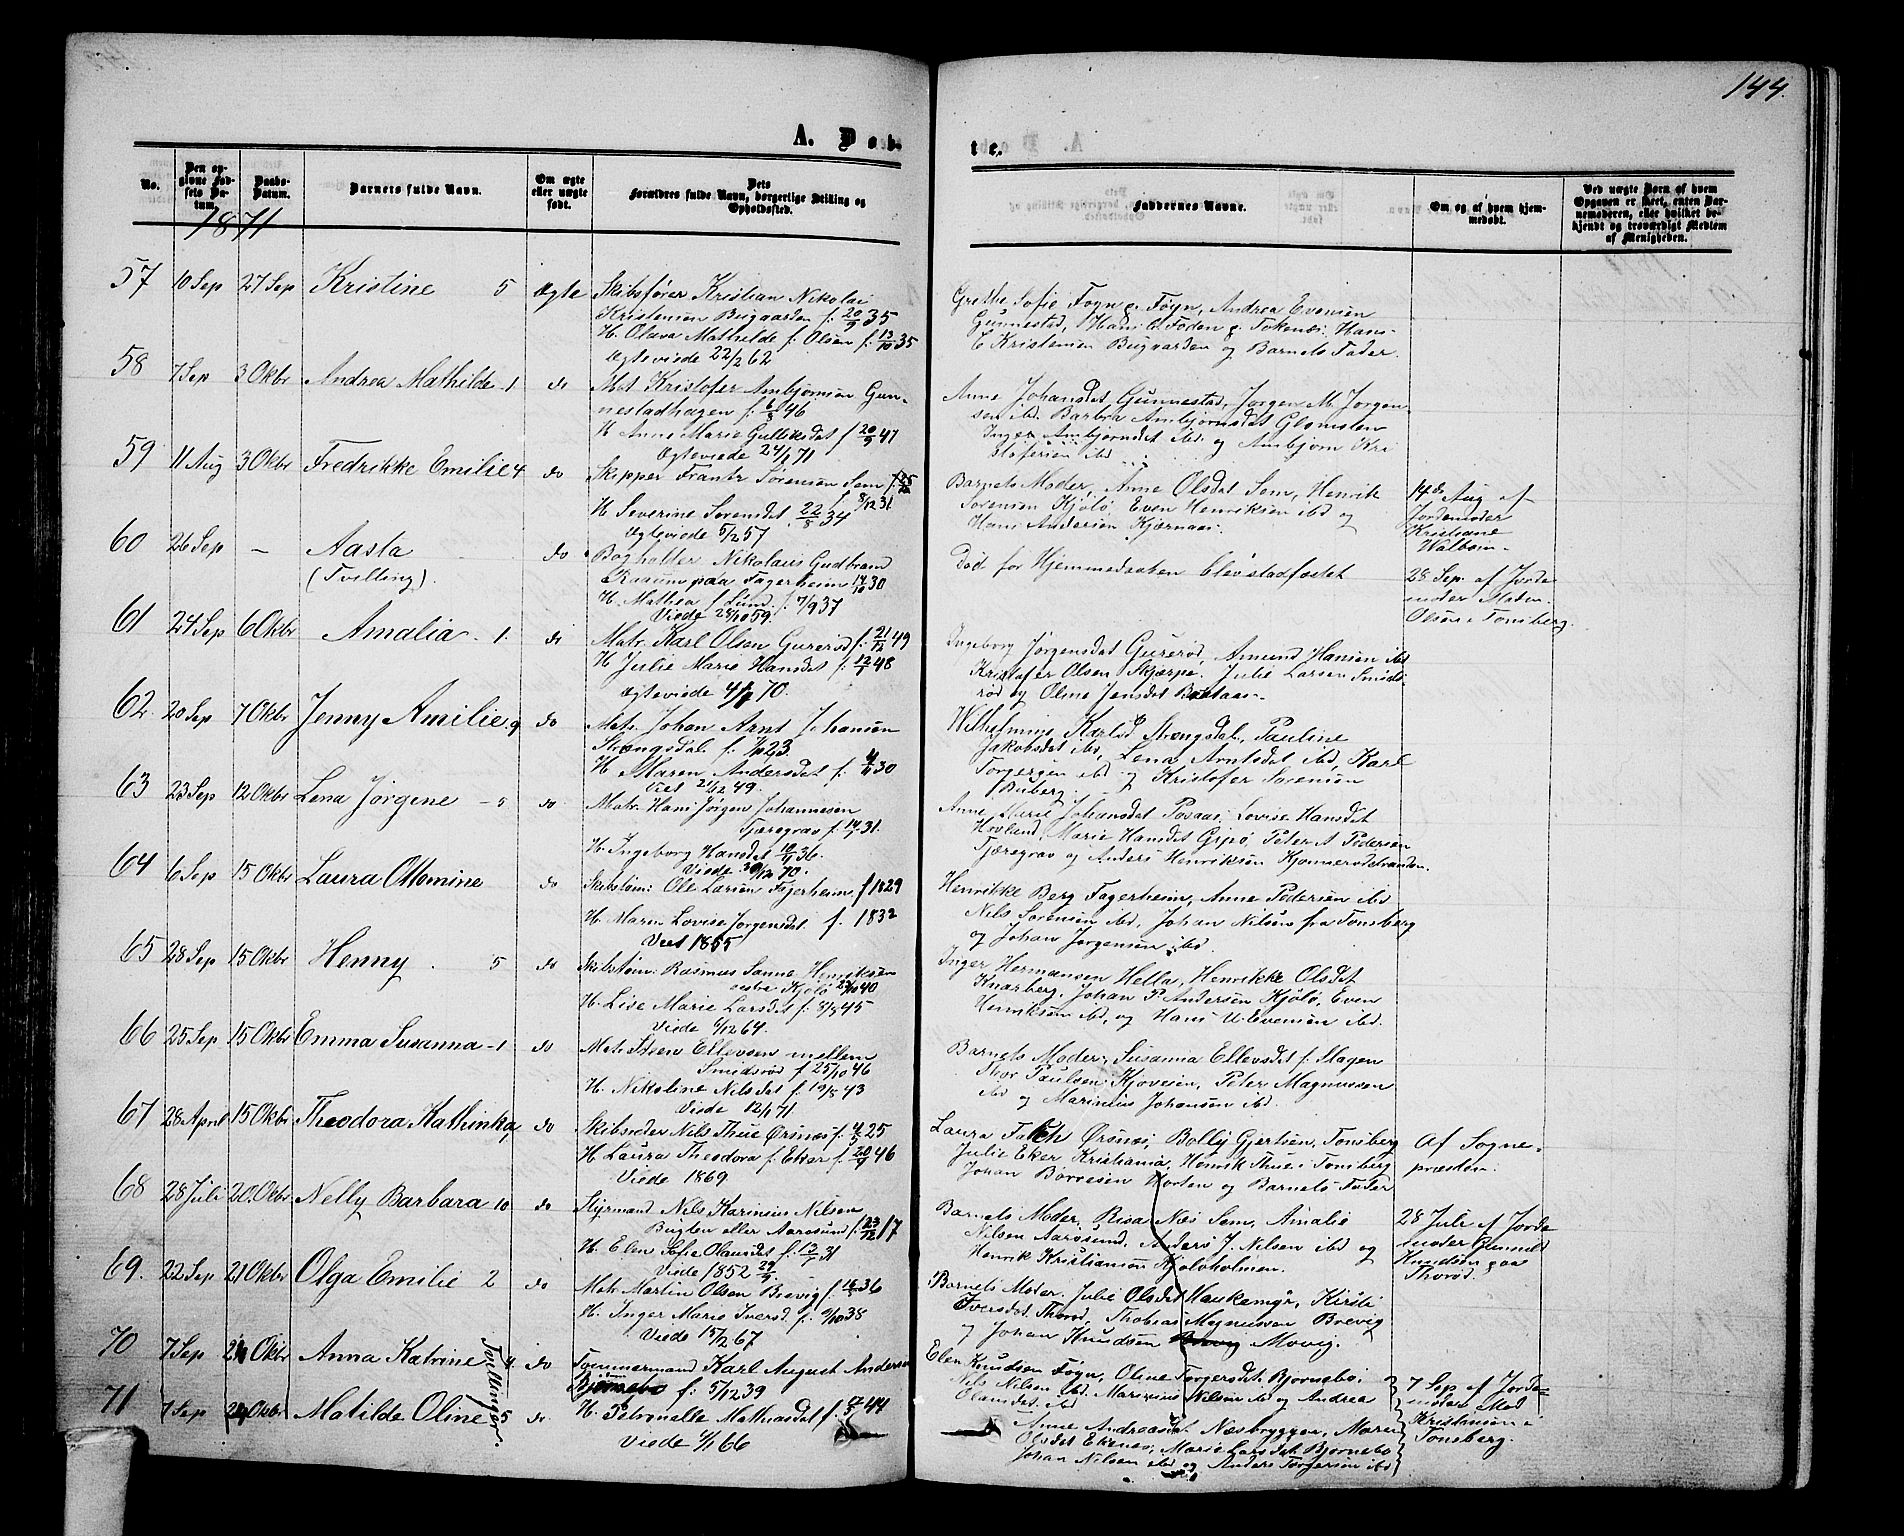 144.
A. Døb-
te.
No.
Den op-
givne Fød-
sels Da-
tum.
Daabs-
Datum.
Barnets fulde Navn.
Om ægte
eller uægte
født.
Dets
Forældres fulde Navn, borgerlige Stilling og
Opholdssted.
Faddernes Navne.
Om og af hvem hjem-
medøbt.
Ved uægte Børn af hvem
Opgaven er skeet, enten Bar-
nemoderen, eller hvilket be-
kjendt og troværdigt Medlem
af Menigheden.
1871
57 10 Sep 27 Sep Kristine 5 ægte
Skibsfører Kristian Nikolai
Kristensen Bugaarden f. 20/9 35
H. Olava Mathilde f. Olsen f. 13/10 35
Ægteviede 22/2 62
Grethe Sofie Foyn g. Føyn, Andrea Evensen
Gunnestad, Hans O. Foden g. Tokenæs, Hans
E Kristensen Bugaarden og Barnets Fader.
58 7 Sep 3 Okbr Andrea Mathilde 1 do
Mat. Kristofer Ambjørnsen Gun-
nestadhagen f. 6/8 46
H Anne Marie Gulliksdat f 20/9 47
Ægteviede 24/1 71
Anne Johansdat Gunnestad, Jørgen M. Jørgen-
sen ibd. Barbra Ambjørnsdat Glomsten
Inger Ambjørndat ibd. og Ambjørn Kri
stofersen ibd
59 11 Aug 3 Okbr Fredrikke Emilie 4 do
Skipper Frantz Sørensen Sem
f. 8/12 31
H. Severine Sørensdat. 22/8 34
Ægteviede 5/2 57
Barnets Moder, Anne Olsdat Sem, Henrik
Sørensen Kjøl̈ø, Even Henriksen ibd og
Hans Andersen Kjærnaas.
14de Aug af
Jordemoder
Kristiane
Walbom.
60 26 Sep — Aasta do
(Tvilling).
Bogholder Nikolaus Gudbrand
Kaaum paa Fagerheim 14/10 30
H. Mathea f. Lund. f. 7/9 37
Viede 28/10 59.
Død før Hjemmedaaben blev stadfæstet
28 Sep. af Jorde
moder Maden
Olsen i Tønsberg.
61 24 Sep 6 Okbr Amalia 1. do
Matr. Karl Olsen Gurerød f. 21/12 49
H Julie Marie Hansdat f. 12/7 48
Ægteviede 4/11 70.
Ingeborg Jørgensdat Gurerød, Amund Hansen ibd
Kristofer Olsen Skjærpe. Julie Larsen Smids-
rød og Oline Jensdat Bastaas.
62. 20 Sep 7 Okbr Jenny Amilie. 9 do
Matr. Johan Arnt Johansen
Strængsdal f. 7/10 23
H. Maren Andersdat f. 4/11 30
Viet 21/12 49.
Wilhelmine Karlsd Strængsdal, Pauline
Jakobsdat ibd, Lena Arntsdat ibd, Karl
Torgersen ibd og Kristofer Sørensen
Buberg.
63 23 Sep 12 Okbr Lena Jørgine 5 do
Matr. Hans Jørgen Johannesen
Tjæregrav f. 14/7 31.
H. Ingeborg Hansdat 10/11 36.
Viede 30/12 70.
Anne Marie Johansdat Posaas, Lovise Hansdat
Hovlund, Marie Hansdat Gipø, Peter A Pedersen
Tjæregrav og Anders Henriksen Kjønnerødstranden.
64 6 Sep 15 Okbr Laura Ottomine do
Skibstøm: Ole Larsen Fagerheim f 1829
H. Maren Lovise Jørgensdat. f. 1832
Viet 1855
Henrikke Berg Fagerheim, Anne Pedersen ibd
Nils Sørensen ibd, Johan Nilsen fra Tønsberg
og Johan Jørgensen ibd.
65 28 Sep 15 Okbr Henny 5 do
Skibstøm: Rasmus Sanne Henriksen
østre Kjøl̈ø 23/10 40
H. Lise Marie Larsdat f. 8/8 45
Viede 6/12 64.
Inger Hermansen Hella, Henrikke Olsdat
Knarberg, Johan P. Andersen Kjøl̈ø, Even
Henriksen ibd, og Hans U. Evensen ibd.
66 25 Sep 15 Okbr Emma Susanna 1 do
Mat. Steen Ellevsen mellem
Smidsrød f 25/10 46
H. Nikoline Nilsdat f. 19/8 43
Viede 12/1 71.
Barnets Moder, Susanna Ellevsdat f. Magen
Thor Paulsen Kjøvesen, Peter Magnussen
ibd og Marinius Johansen ibd.
67 28 April 15 Okbr Theodora Kathinka, do
Skibsreder Nils Thue Ørsnæs f. 4/5 25
H. Laura Theodora f. Eker f. 20/9 46
Viede 1869
Laura Falch Ørsnæs, Bolly Gjertsen, Tønsberg
Julie Eker Kristiania, Henrik Thue i Tønsberg
Johan Børresen Horten og Barnets Fader
Af Sogne-
præsten.
68 28 Juli 20. Okbr Nelly Barbara 10 do
Styrmand Nils Karinius Nilsen
Bugten eller Aarøsund f. 23/12 17
H. Elen Sofie Olausdat f. 12/7 31
Viede 1852 29/9
Barnets Moder, Risa Næs Sem, Amalie
Nilsen Aarøsund, Anders J. Nilsen ibd og
Henrik Kristiansen Kjøl̈øholmen.
28 Juli af Jorde
moder Gunnild
Knudsen paa
Thorød.
69. 22 Sep 21 Okbr Olga Emilie 2 do
Matr. Martin Olsen Brevig f. 16/5 36
H. Inger Marie Iversd. f. 9/10 38
Viede 15/2 67
Barnets Moder. Julie Olsdat Haukemyr, Kirsti
Iversdat Thorød, Thobias Magnussen Brevig
og Johan Knudsen Brevig Movig.
70 7 Sep 21 Okbr Anna Katrine 4 do
Tvillinger.
Tømmermand Karl August Anderse
Bjørnebo f. 5/12 39
Elen Knudsen Føyn, Oline Torgersdat Bjørnebo,
Nils Nilsen ibd. Marinius Nilsen ibd og Andrea
Olausdat ibd
7 Sep af Jorde-
moder Mad
Kristiansen i
Tønsberg.
71 7 Sep 21 Okbr Matilde Oline 5 do
H. Petronelle Mathiasdat f. 8/5 44
Viede 6/1 66
Anne Andreasdat Næsbryggen, Maren
Olsdat Ekenes, Marie Larsdat Bjørnebo
Johan Nilsen ibd og Anders Torgersen ibd